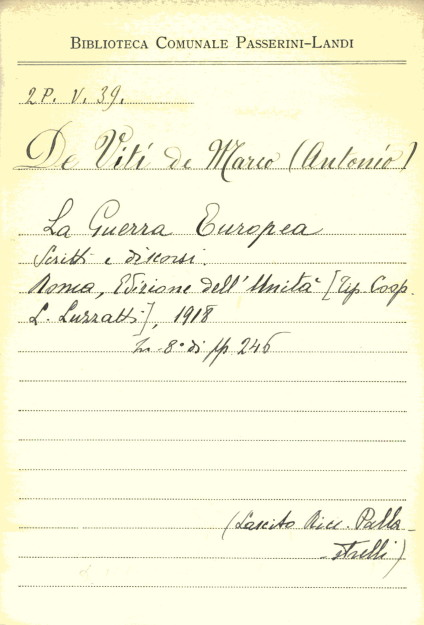 BIBLIOTECA COMUNALE PASSERINI-LANDI
2P. V. 39.
De Viti de Marco (Antonio)
La Guerra Europea
Scritti e discorsi.
Roma, Edizione dell'Unità [Tip. Coop.
L. Luzzatti], 1918
In 8° di pp 246
(Lascito Ricc. Palla-
-strelli)